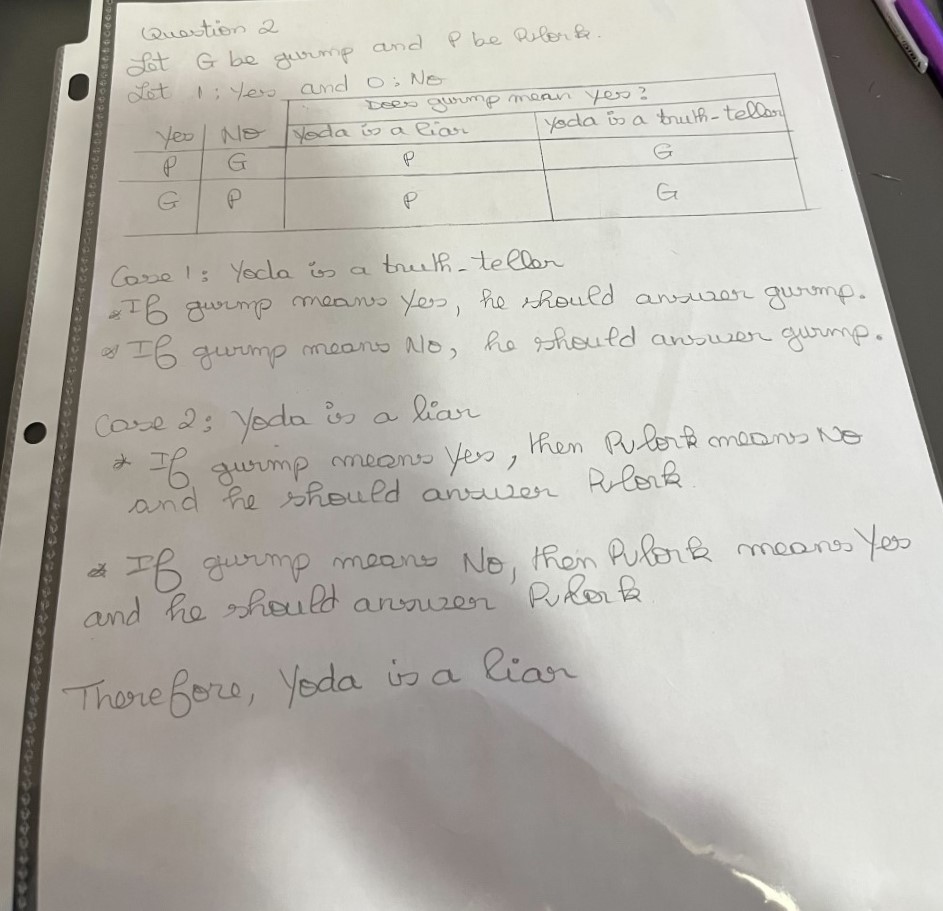 Question 2
Let G be gurmp and P be Pulork.
Let 1: Yes and 0: No
Does gurmp mean yes?
Yes No Yoda is a liar Yoda is a truth-teller
P G P G
G P P G
Case 1: Yoda is a truth-teller
* If gurmp means Yes, he should answer gurmp.
* If gurmp means No, he should answer gurmp.
Case 2: Yoda is a liar
* If gurmp means Yes, then Pulork means No
and he should answer Pulork.
* If gurmp means No, then Pulork means Yes
and he should answer Pulork
Therefore, Yoda is a liar